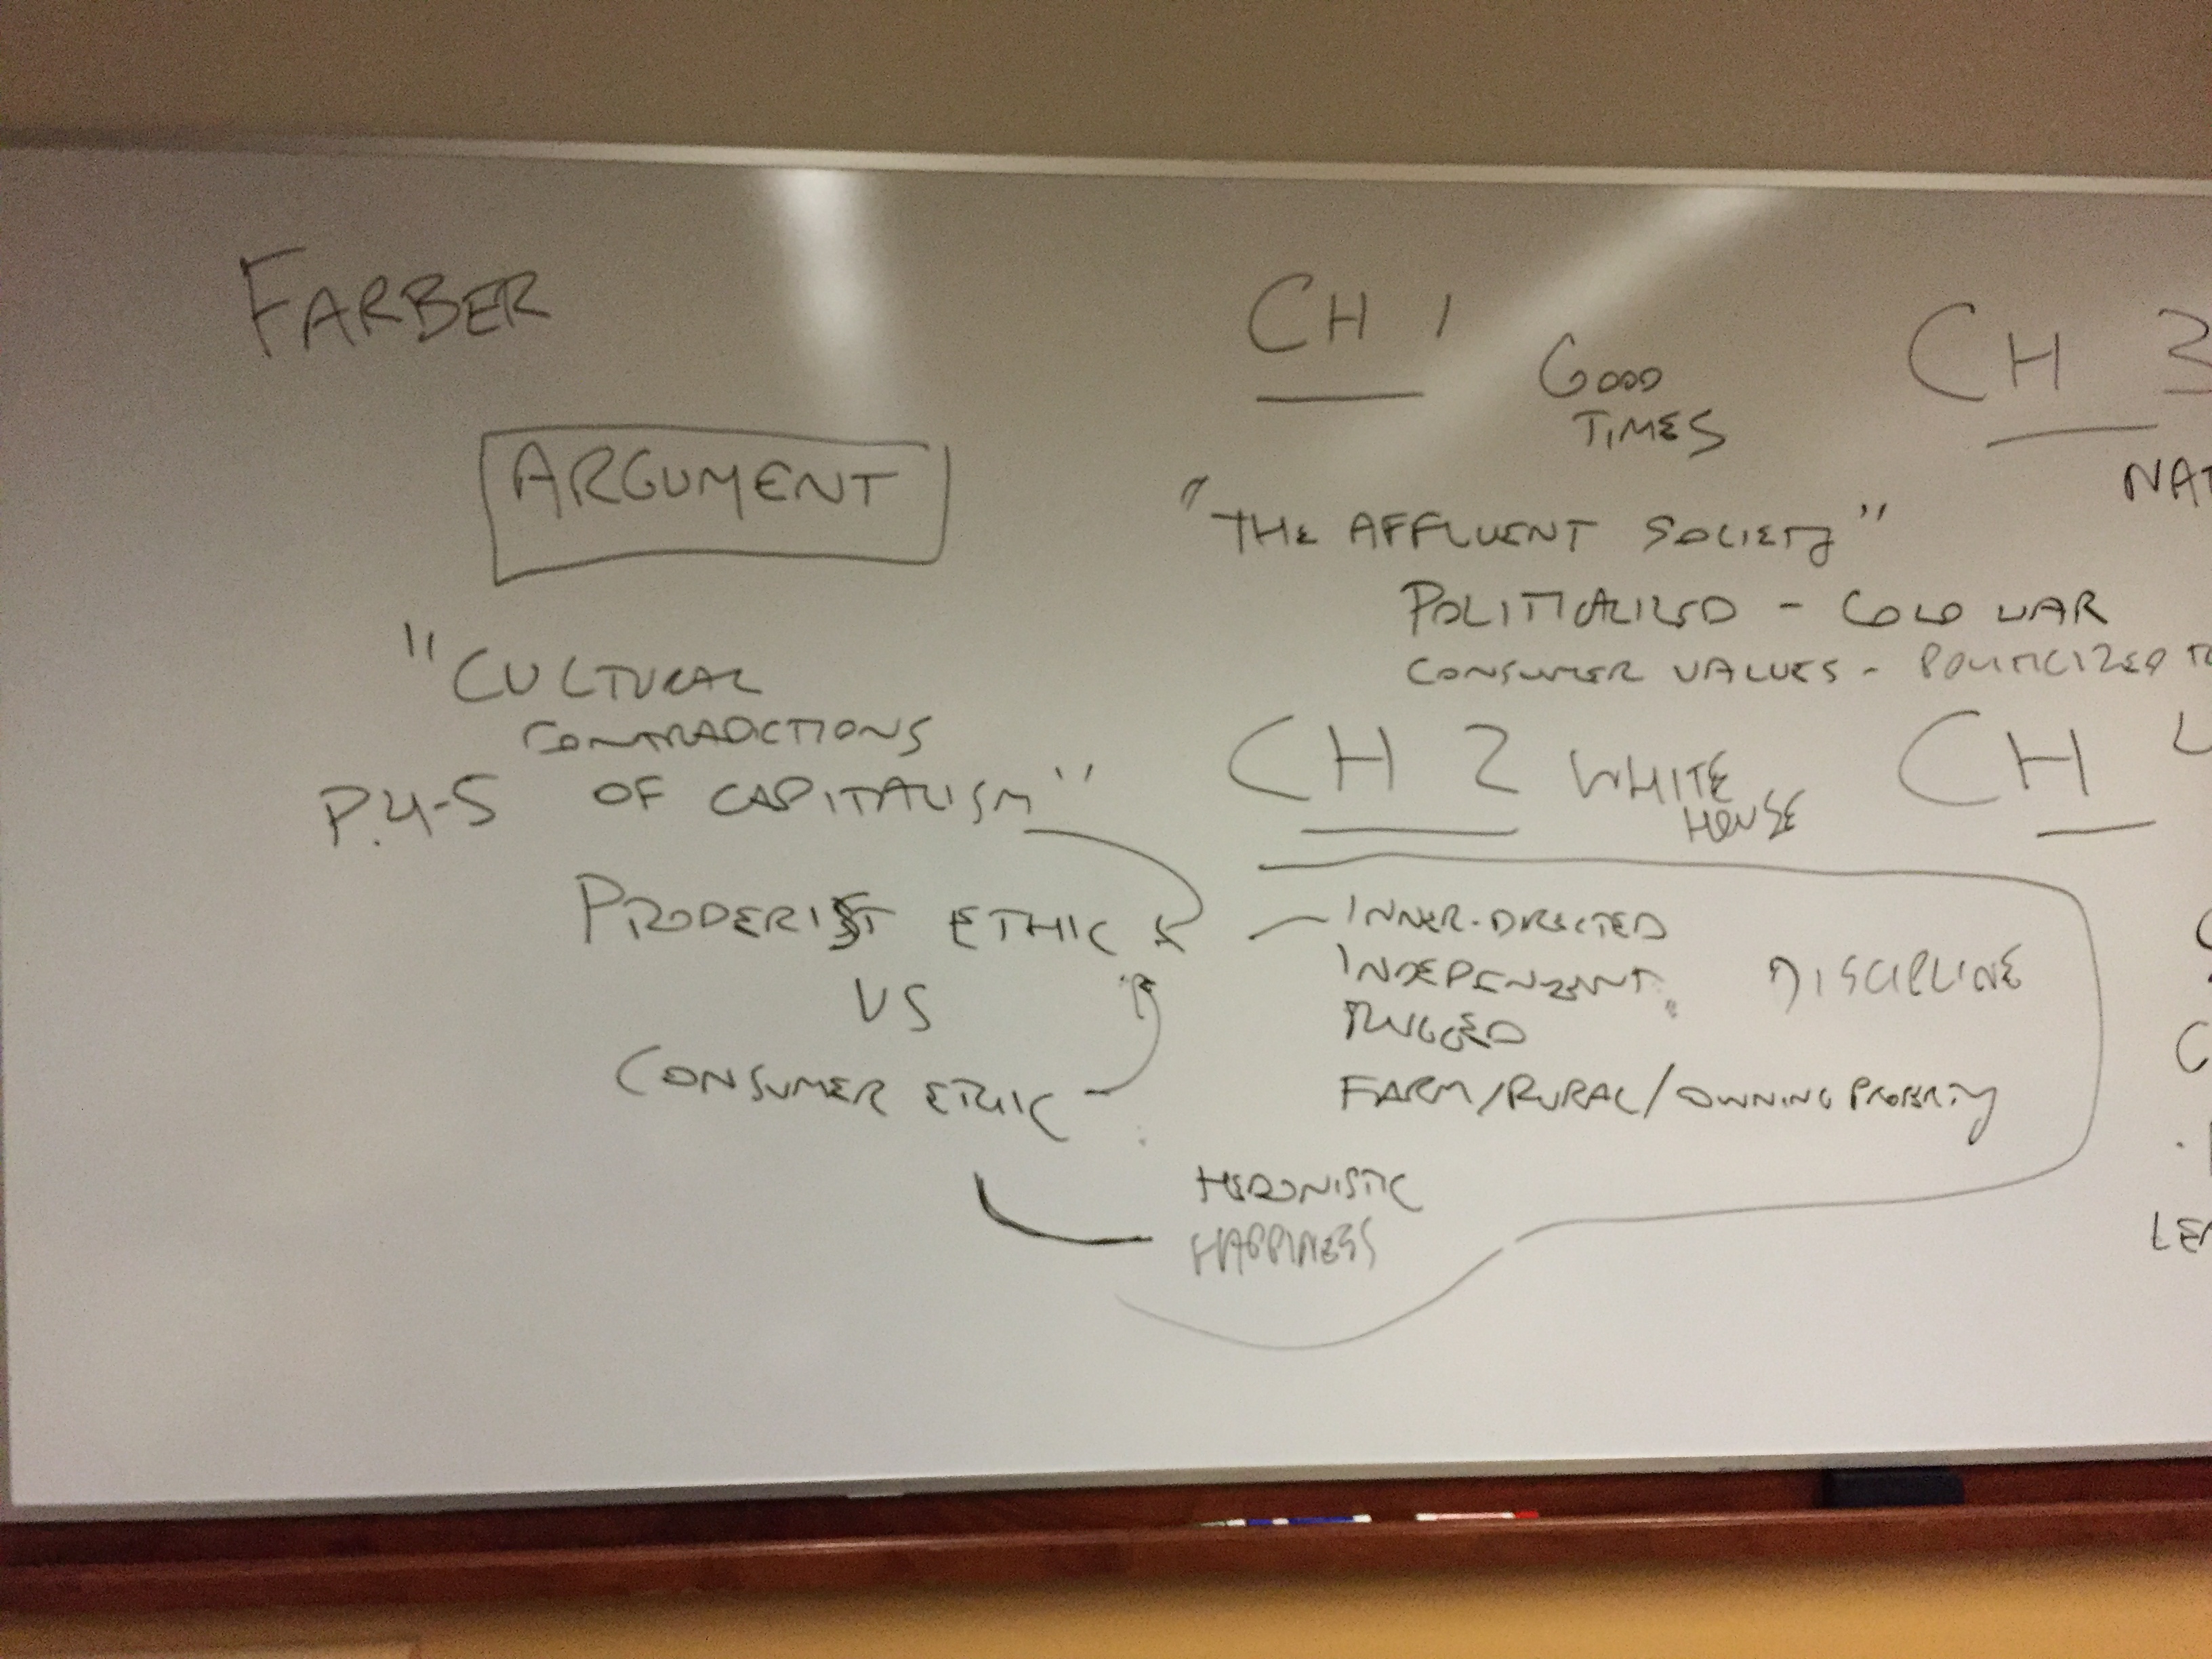 FARBER
ARGUMENT
"CULTURAL
CONTRADICTIONS
P.4-5 OF CAPITALISM"
PRODERIST ETHIC
VS
CONSUMER ETHIC
CH 1
GOOD
TIMES
"THE AFFLUENT SOCIETY"
POLITICALIZED - COLD WAR
CONSUMER VALUES - POLITICIZED TO
CH 2 WHITE
HOUSE
INNER-DIRECTED
INDEPENDENT DISCIPLINE
RUGGED
FARM/RURAL/OWNING PROPERTY
HEDONISTIC
HAPPINESS
CH 3
NAT
CH
LE